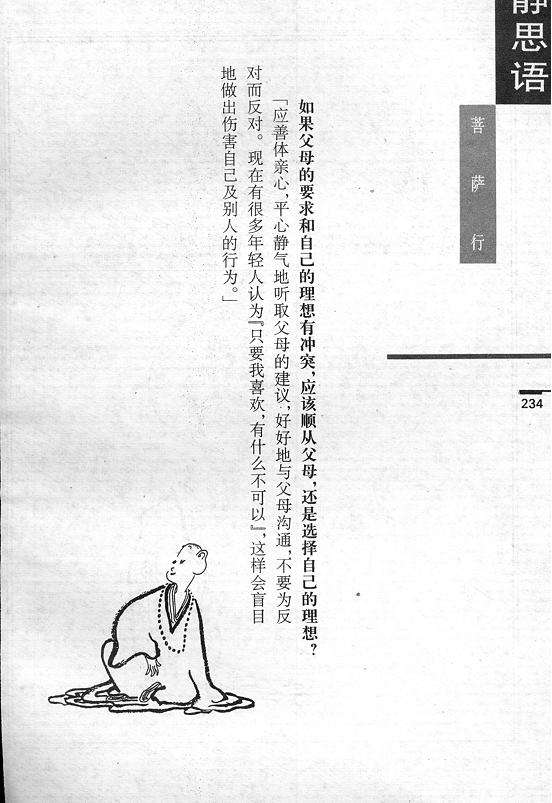 静思语
菩萨行
234
如果父母的要求和自己的理想有冲突，应该顺从父母，还是选择自己的理想？
「应善体亲心，平心静气地听取父母的建议，好好地与父母沟通，不要为反
对而反对。现在有很多年轻人认为『只要我喜欢，有什么不可以』，这样会盲目
地做出伤害自己及别人的行为。」